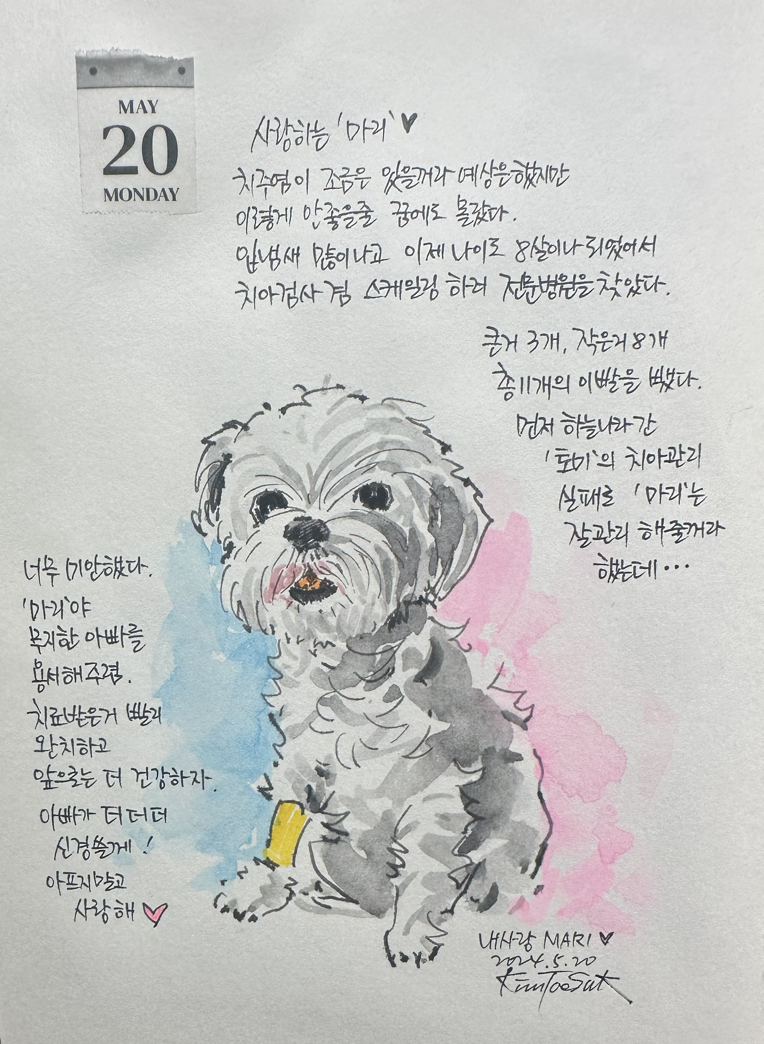 MAY
20
MONDAY
사랑하는 '마리' ♥
치주염이 조금은 있을꺼라 예상은 했지만
이렇게 안좋을줄 꿈에도 몰랐다.
입냄새 많이나고 이제 나이도 8살이나 되었어서
치아검사 겸 스케일링 하러 전문병원을 찾았다.
큰거 3개, 작은거 8개
총 11개의 이빨을 뺐다.
먼저 하늘나라 간
'토미'의 치아관리
실패로 '마리'는
잘 관리 해줄꺼라
했는데 ...
너무 미안했다.
'마리'야
무지한 아빠를
용서해주렴.
치료받은거 빨리
완치하고
앞으로는 더 건강하자.
아빠가 더 더 더
신경쓸게!
아프지말고
사랑해 ♥
내사랑 MARI ♥
2024.5.20